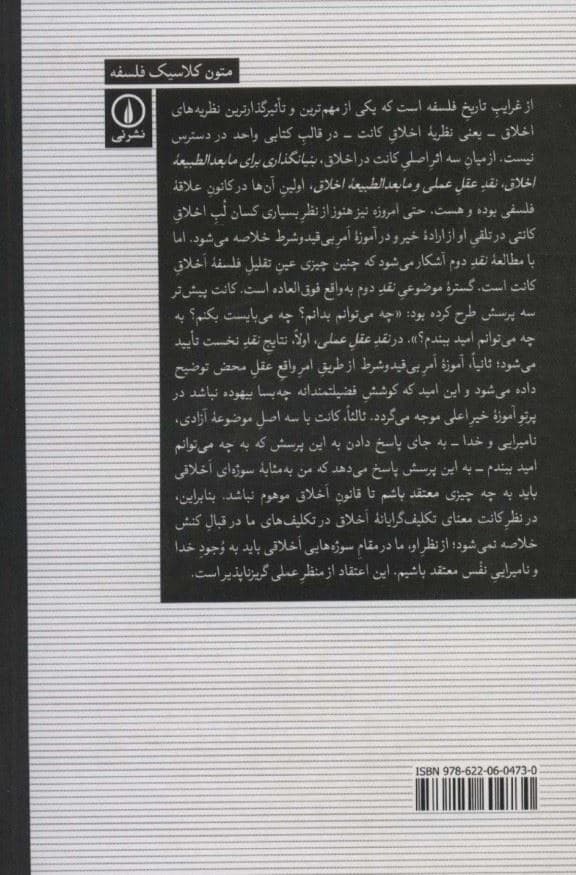 متون کلاسیک فلسفه
نشرنی
از غرایبِ تاریخ فلسفه است که یکی از مهم‌ترین و تأثیرگذارترین نظریه‌های
اخلاق ـ یعنی نظریهٔ اخلاقِ کانت ـ در قالبِ کتابی واحد در دسترس
نیست. از میانِ سه اثرِ اصلیِ کانت در اخلاق، بنیانگذاری برای مابعدالطبیعهٔ
اخلاق، نقدِ عقلِ عملی و مابعدالطبیعهٔ اخلاق، اولینِ آن‌ها در کانونِ علاقهٔ
فلسفی بوده و هست. حتی امروزه نیز هنوز از نظرِ بسیاری کسان لُبِ اخلاقِ
کانتی در تلقیِ او از ارادهٔ خیر و در آموزهٔ اَمرِ بی‌قیدوشرط خلاصه می‌شود. اما
با مطالعهٔ نقدِ دوم آشکار می‌شود که چنین چیزی عینِ تقلیلِ فلسفهٔ اَخلاقِ
کانت است. گسترهٔ موضوعیِ نقدِ دوم به‌واقع فوق‌العاده است. کانت پیش‌تر
سه پرسش طرح کرده بود: «چه می‌توانم بدانم؟ چه می‌بایست بکنم؟ به
چه می‌توانم امید ببندم؟». در نقدِ عقلِ عملی، اولاً، نتایجِ نقدِ نخست تأیید
می‌شود؛ ثانیاً، آموزهٔ اَمرِ بی‌قیدوشرط از طریقِ امرِ واقعِ عقلِ محض توضیح
داده می‌شود و این امید که کوششِ فضیلتمندانه چه‌بسا بیهوده نباشد در
پرتوِ آموزهٔ خیرِ اعلی موجه می‌گردد. ثالثاً، کانت با سه اصلِ موضوعهٔ آزادی،
نامیرایی و خدا ـ به جای پاسخ دادن به این پرسش که به چه می‌توانم
امید ببندم ـ به این پرسش پاسخ می‌دهد که من به‌مثابهٔ سوژه‌ای اَخلاقی
باید به چه چیزی معتقد باشم تا قانونِ اَخلاق موهوم نباشد. بنابراین،
در نظرِ کانت معنای تکلیف‌گرایانهٔ اَخلاق در تکلیف‌های ما در قبالِ کنش
خلاصه نمی‌شود؛ از نظرِ او، ما در مقامِ سوژه‌هایی اَخلاقی باید به وُجودِ خدا
و نامیراییِ نفْس معتقد باشیم. این اعتقاد از منظرِ عملی گریزناپذیر است.
ISBN 978-622-06-0473-0